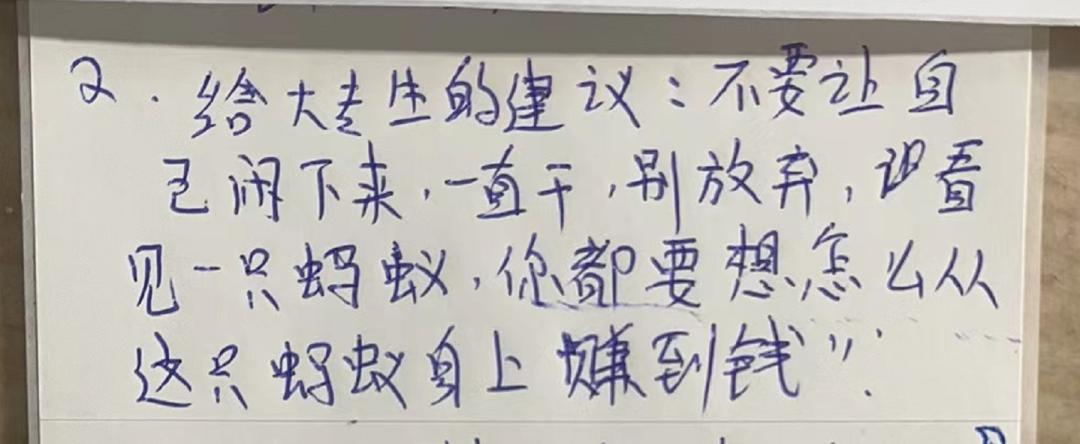 2. 给大专生的建议：不要让自
己闲下来，一直干，别放弃，识看
见一只蚂蚁，你都要想怎么从
这只蚂蚁身上赚到钱"．